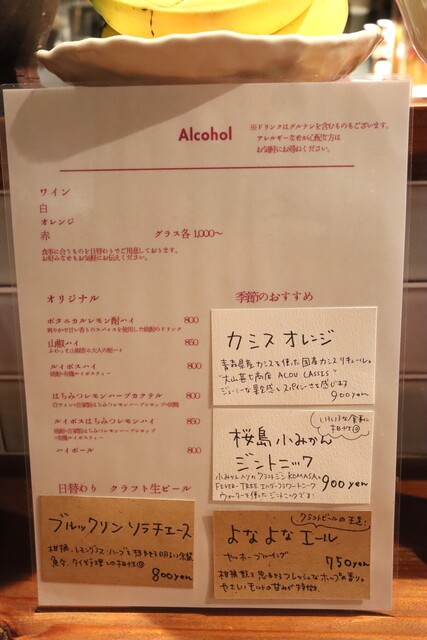 Alcohol
※ドリンクはグルテンを含むものもございます。
アレルギーなどご心配な方は
お気軽にお尋ねください。
ワイン
白
オレンジ
赤
グラス各 1,000〜
食事に合うものを日替わりでご用意しております。
お好みなどもお気軽にお伝えください。
オリジナル
ボタニカルレモン酎ハイ 800
爽やかで甘い香りのスパイスを使用した焼酎のドリンク
山椒ハイ 850
ふわっと山椒香る大人の酎ハイ
ルイボスハイ 800
はちみつレモンハーブカクテル 800
白ワイン+自家製はちみつレモンハーブシロップ+炭酸
ルイボスはちみつレモンハイ 850
焼酎+自家製はちみつレモンハーブシロップ
+有機ルイボスティー
ハイボール 800
季節のおすすめ
カシス オレンジ
青森県産カシスを使った国産カシスリキュール。
ジューシーな果実感とスパイシーさを感じます
900yen
桜島小みかん
ジントニック
900yen
小みかんのクラフトジン KOMASAと
FEVER-TREE エルダーフラワートニック
ウォーターを使ったジントニックです!
日替わり クラフト生ビール
ブルックリン ソラチエース
柑橘、レモングラス、ハーブを
800yen
クラフトビールの王道!
よなよなエール
ヤッホーブルーイング
750yen
柑橘類を思わせるフレッシュなホップの香りと
やさしいモルトの甘みが特徴。